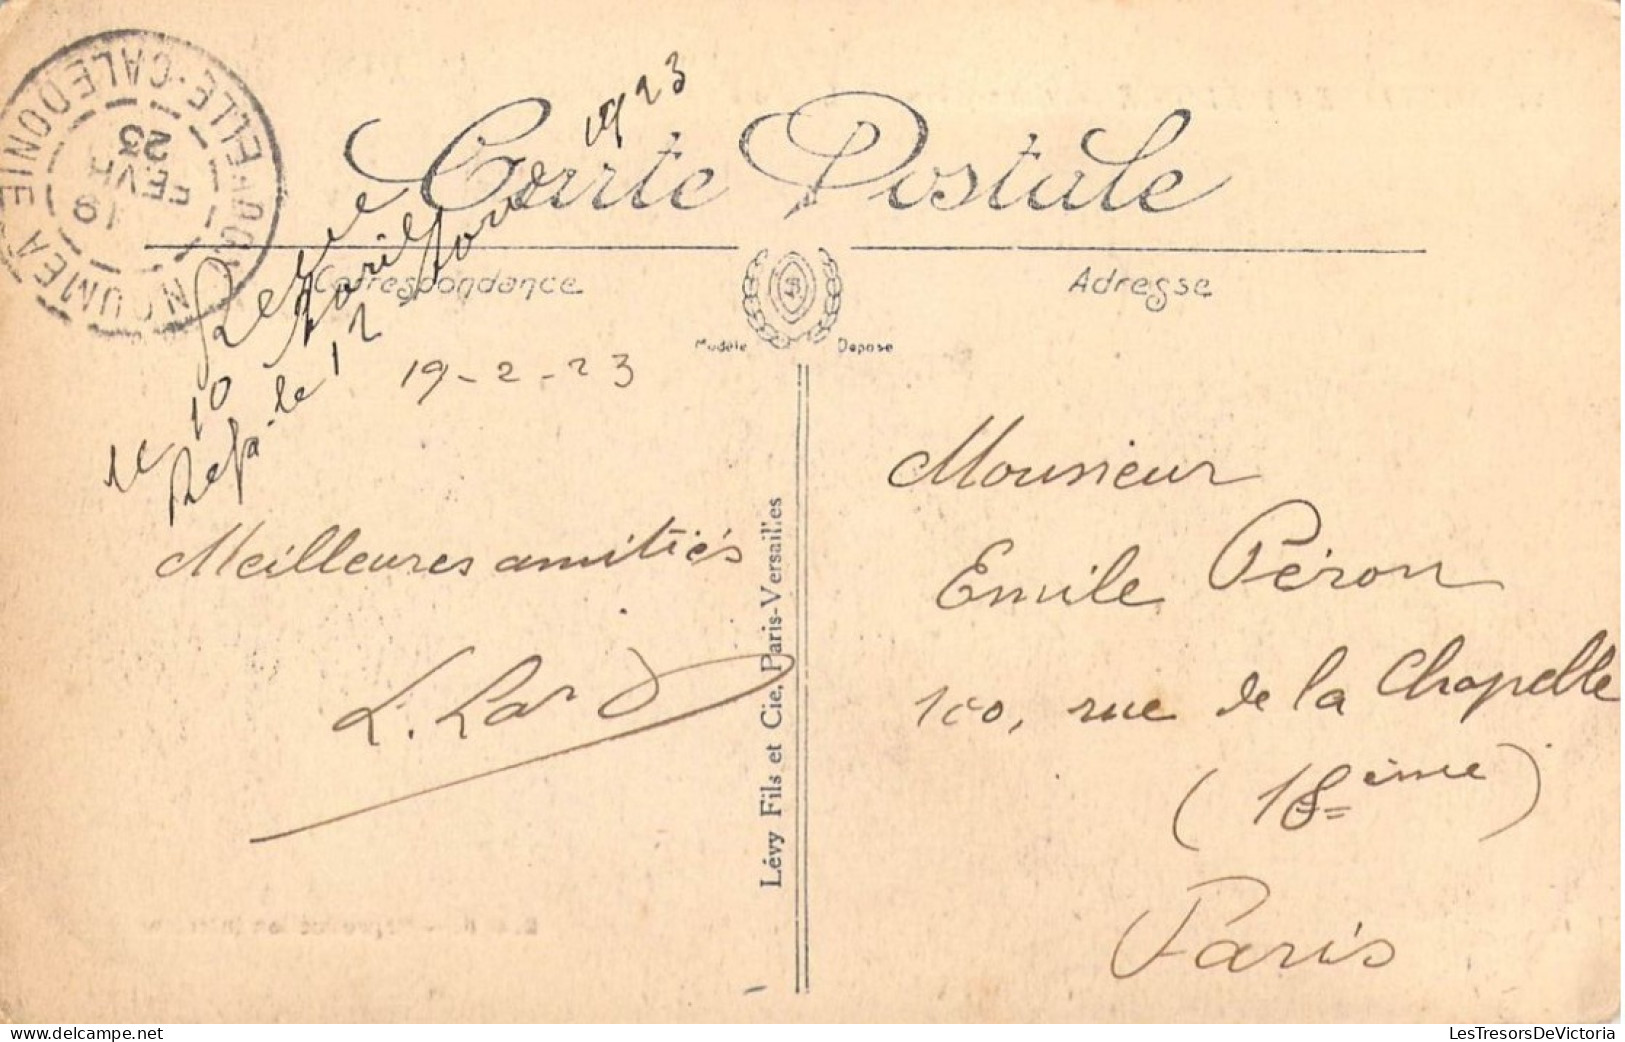 NOUMEA
NLLE-CALEDONIE
19
FEVR
23
Carte Postale
Correspondance
Adresse
Modèle
Déposé
le 10 Avril 1923
Rep. le 12
19-2-23
Meilleures amitiés
Lévy Fils et Cie, Paris-Versailles
Monsieur
Emile Péron
100, rue de la Chapelle
(18=ème)
Paris
LesTresorsDeVictoria